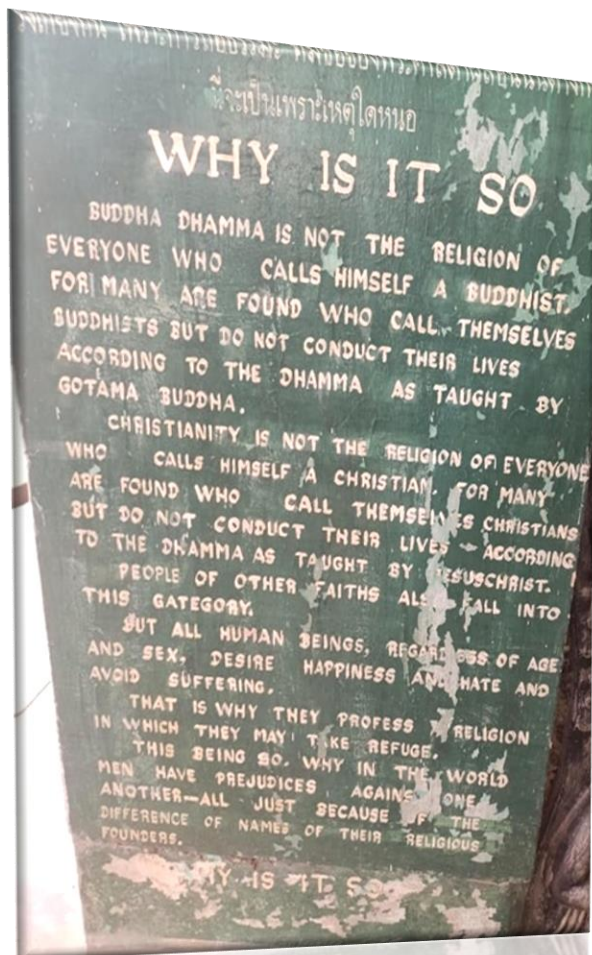 นี่จะเป็นเพราะเหตุใดหนอ
WHY IS IT SO
BUDDHA DHAMMA IS NOT THE RELIGION OF
EVERYONE WHO CALLS HIMSELF A BUDDHIST.
FOR MANY ARE FOUND WHO CALL THEMSELVES
BUDDHISTS BUT DO NOT CONDUCT THEIR LIVES
ACCORDING TO THE DHAMMA AS TAUGHT BY
GOTAMA BUDDHA.
CHRISTIANITY IS NOT THE RELIGION OF EVERYONE
WHO CALLS HIMSELF A CHRISTIAN. FOR MANY
ARE FOUND WHO CALL THEMSELVES CHRISTIANS
BUT DO NOT CONDUCT THEIR LIVES ACCORDING
TO THE DHAMMA AS TAUGHT BY JESUSCHRIST.
PEOPLE OF OTHER FAITHS ALSO FALL INTO
THIS GATEGORY.
BUT ALL HUMAN BEINGS, REGARDLESS OF AGE
AND SEX, DESIRE HAPPINESS AND HATE AND
AVOID SUFFERING.
THAT IS WHY THEY PROFESS RELIGION
IN WHICH THEY MAY TAKE REFUGE.
THIS BEING SO. WHY IN THE WORLD
MEN HAVE PREJUDICES AGAINST ONE
ANOTHER—ALL JUST BECAUSE OF THE
DIFFERENCE OF NAMES OF THEIR RELIGIOUS
FOUNDERS.
WHY IS IT SO